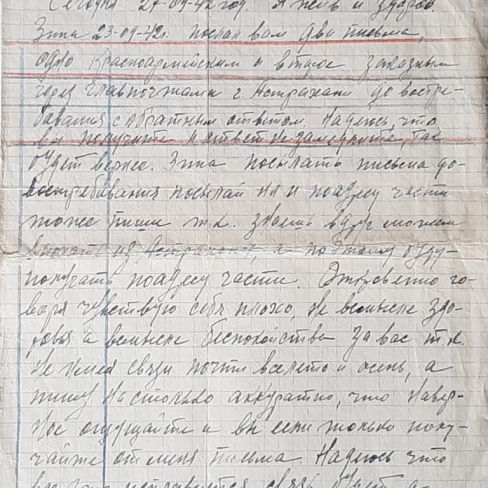 Сегодня 27-09-42 год. Я жив и здоров
Зина 23-09-42г. послал вам два письма,
одно Красноармейским и второе заказным
через Главпочтамт г. Астрахани до востре-
бования с обратным ответом. Надеюсь, что
вы получите и ответ не замедлите, так
будет вернее. Зина посылать письма до-
востребования посылай но и по адресу части
тоже пиши т.к. знаешь вдруг можем
выехать из Астрахани, а поэтому буду
получать по адресу части. Откровенно го-
воря чувствую себя плохо, не в смысле здо-
ровья а в смысле беспокойства за вас т.к.
не имея связи почти все лето и осень, а
пишу настолько аккуратно, что навер-
ное ощущайте и вы если только полу-
чайте от меня письма. Надеюсь что
связь будет